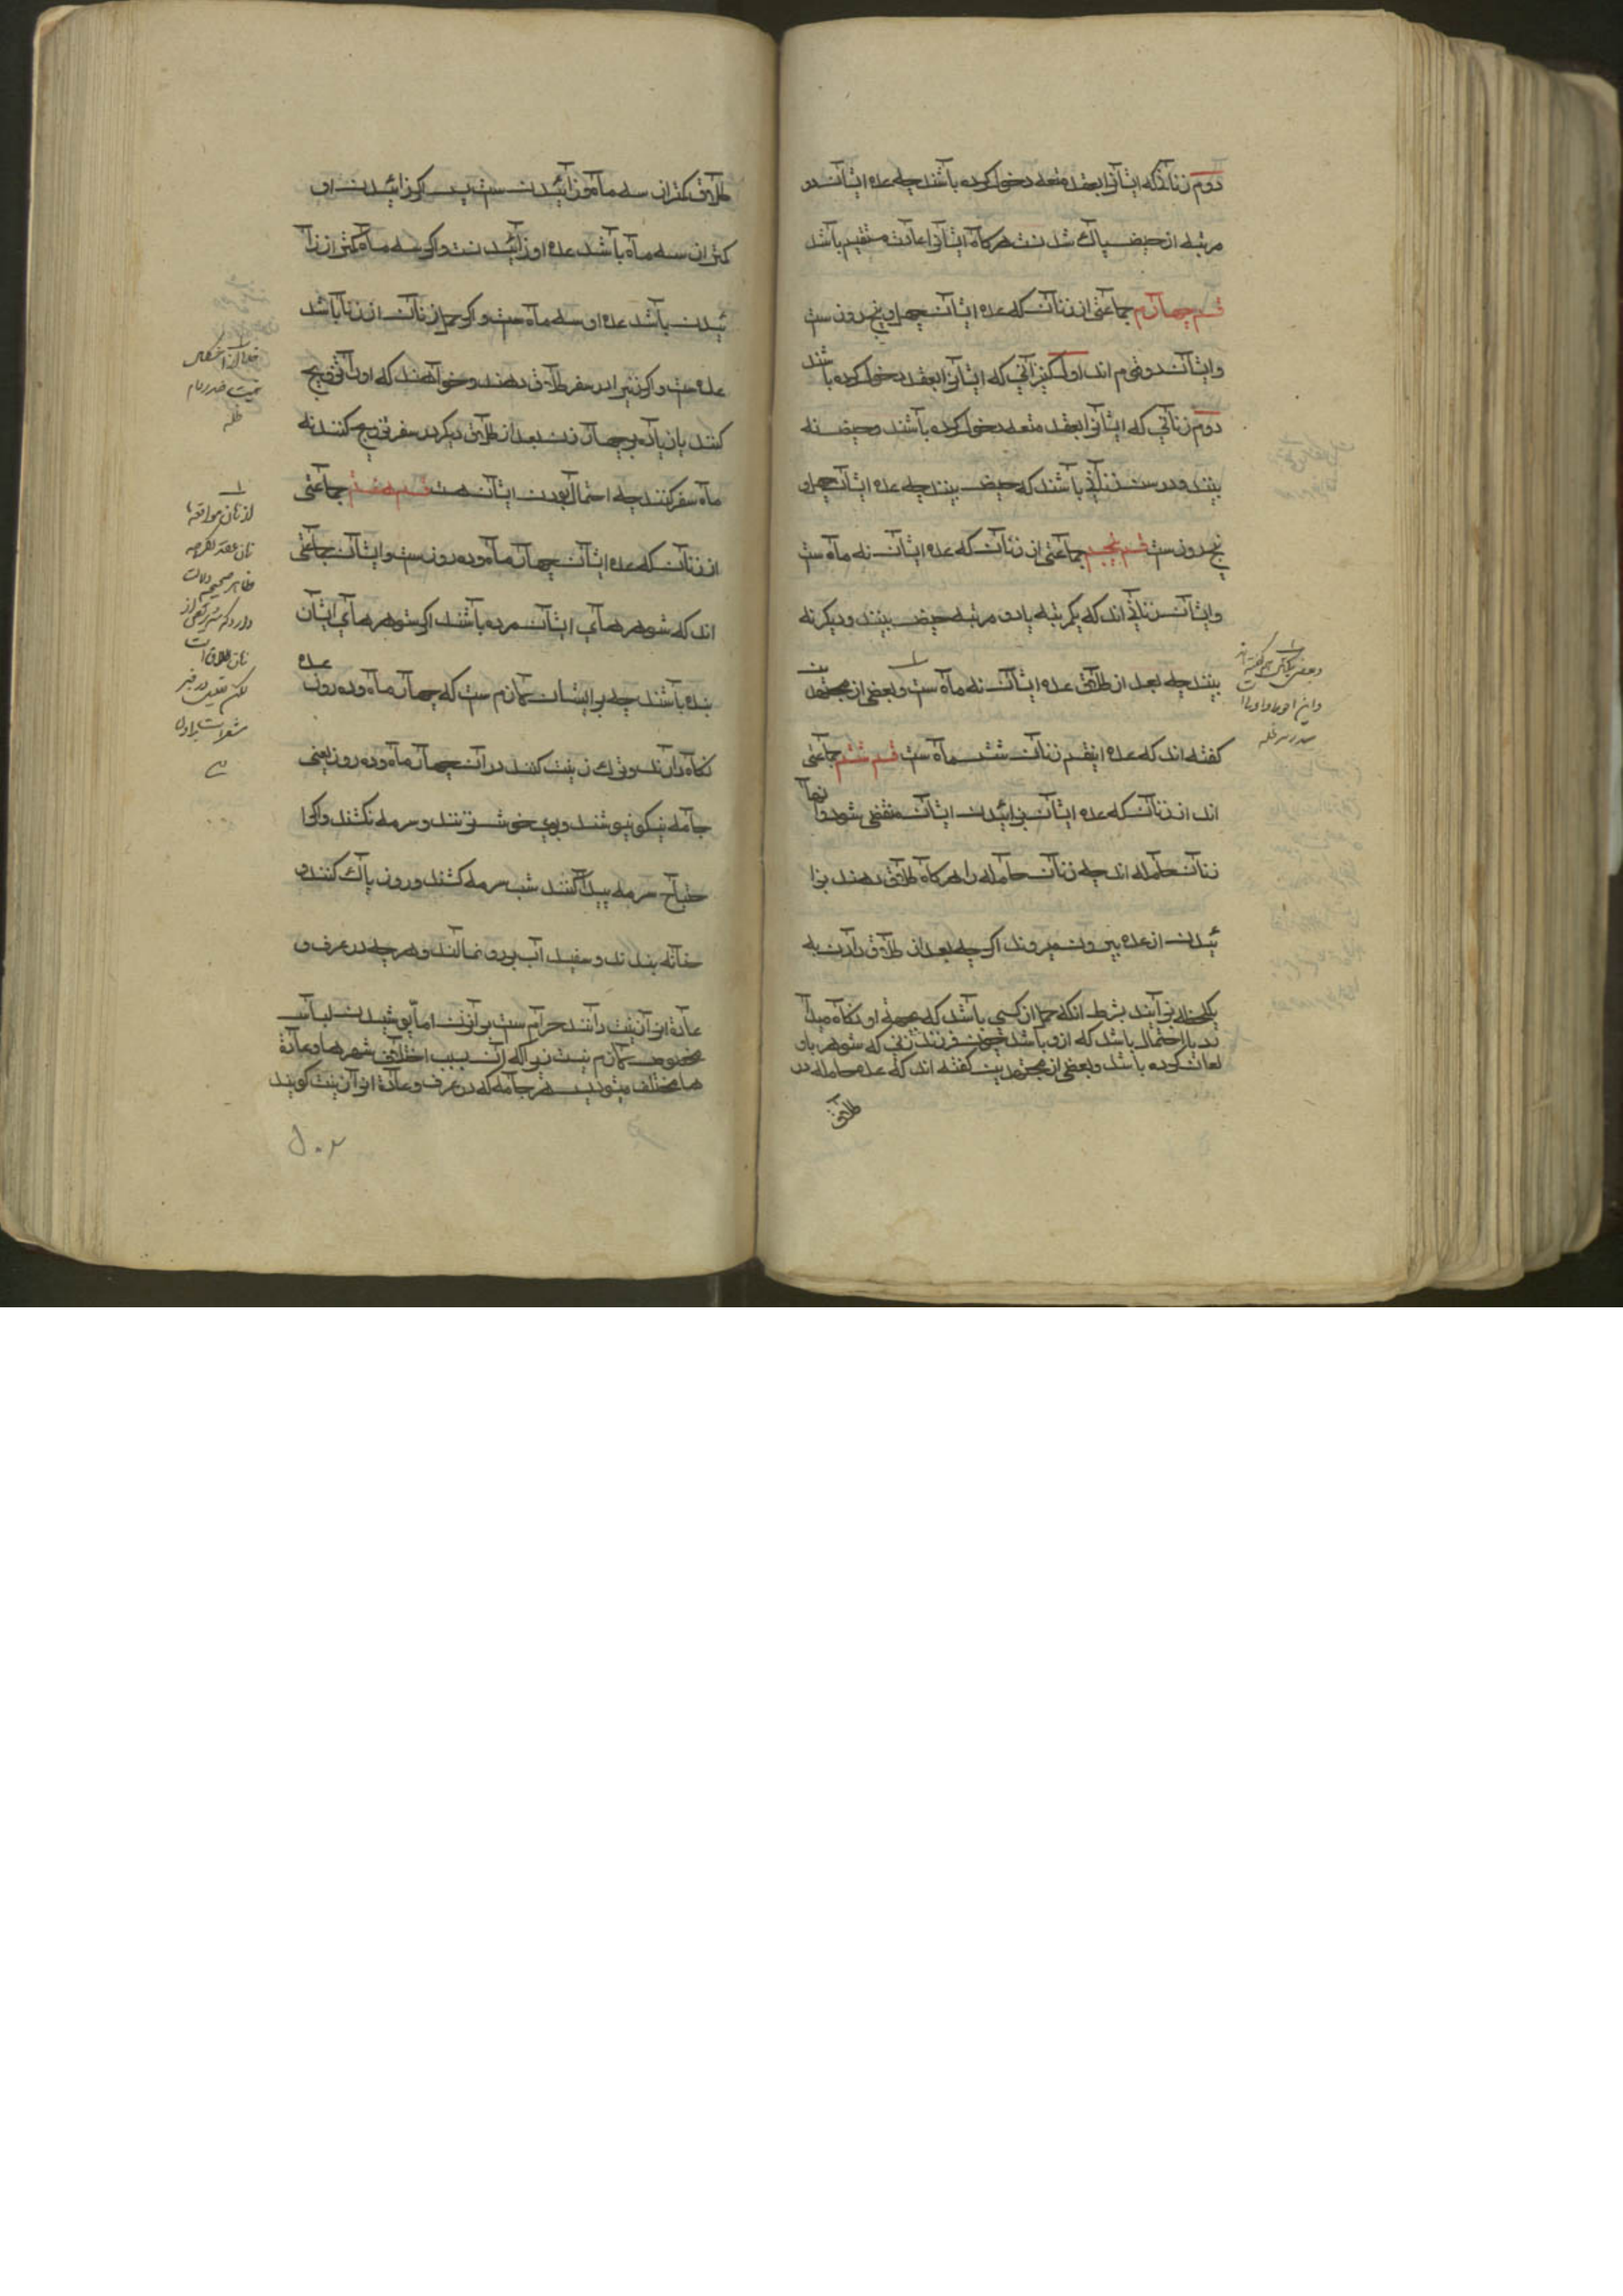 دوم زنانی که ایشانرا بعقد متعه دخول کرده باشند چه عده ایشان دو
مرتبه از حیض پاک شدنست هرگاه ایشانرا عادت مستقیم باشد
قسم چهارم جماعتی از زنان که عده ایشان چهل و پنج روز ست
و ایشان دو قسم اند اول کنیزانی که ایشانرا بعقد دخول کرده باشند
دوم زنانی که ایشانرا بعقد متعه دخول کرده باشند و حیض نه
بینند و در سن زنانی باشند که حیض بینند چه عده ایشان چهل و
پنج روز ست قسم پنجم جماعتی از زنان که عده ایشان نه ماه ست
و ایشان زنانی اند که یکمرتبه یا دو مرتبه حیض بینند و دیگر نه
بینند چه بعد از طلاق عده ایشان نه ماه ست و بعضی از مجتهدین
گفته اند که عده اینقسم زنان شش ماه ست قسم ششم جماعتی
اند از زنان که عده ایشان بزائیدن ایشان منقضی شود و آنها
زنان حامله اند چه زنان حامله را هرگاه طلاق دهند بزا
ئیدن از عده بیرون میروند اگرچه بعد از طلاق دادن به
یکلحظه بزایند بشرط آنکه حمل از کسی باشد که عده او نگاه میدا
ند یا احتمال باشد که ازو باشد چون فرزند زنی که شوهر باو
لعان کرده باشد و بعضی از مجتهدین گفته اند که عده حامله در
طلاق
طلاق کمتر از سه ماه و زائیدن ست پس اگر زائیدن او
کمتر از سه ماه باشد عده او زائیدنست و اگر سه ماه کمتر از زا
ئیدن باشد عده او سه ماه ست و اگر حمل زنان از زنا باشد
عده ست و اگر زنیرا در سفر طلاق دهند و خواهند که او را تزویج
کنند یا زیاده بر چهار زن بعد از طلاق دیگر در سفر تزویج کنند نه
ماه سفر کنند چه احتمال بودن ایشان هست قسم هفتم جماعتی
از زنان که عده ایشان چهار ماه و ده روز ست و ایشان جماعتی
اند که شوهرهای ایشان مرده باشند اگر شوهرهای ایشان
بنده باشند چه بر ایشان لازم ست که چهار ماه و ده روز عده
نگاه دارند و ترک زینت کنند در آن چهار ماه و ده روز یعنی
جامه نیکو نپوشند و بوی خوش نزنند و سرمه نکشند و اگر ا
حتیاج سرمه پیدا کنند شب سرمه کشند و روز پاک کنند و
حنا نه بندند و سفید آب بر رو نمالند و هر چه در عرف و
عادة او را زینت دانند حرام ست بر آن زن اما پوشیدن لباس
مخصوص لازم نیست زیرا که آن بسبب اختلاف شهرها و عادة
ها مختلف میشود پس هر جامه که در عرف و عادة او را زینت گویند